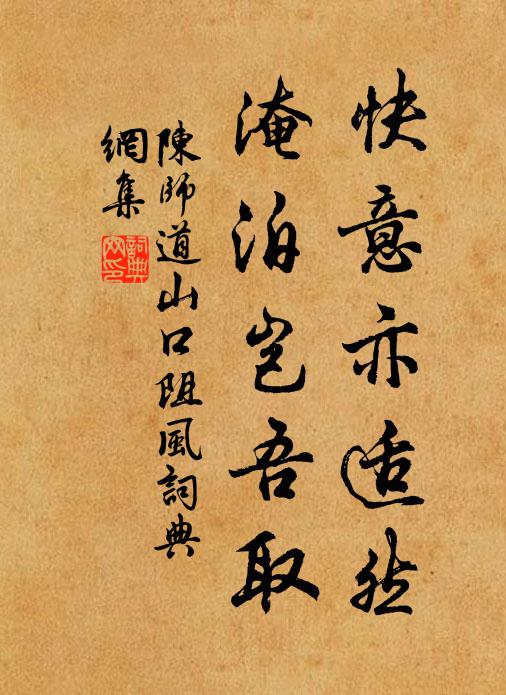 快意亦适然
淹泊岂吾取
陳師道山口阻風詞典
網集
詞典网印